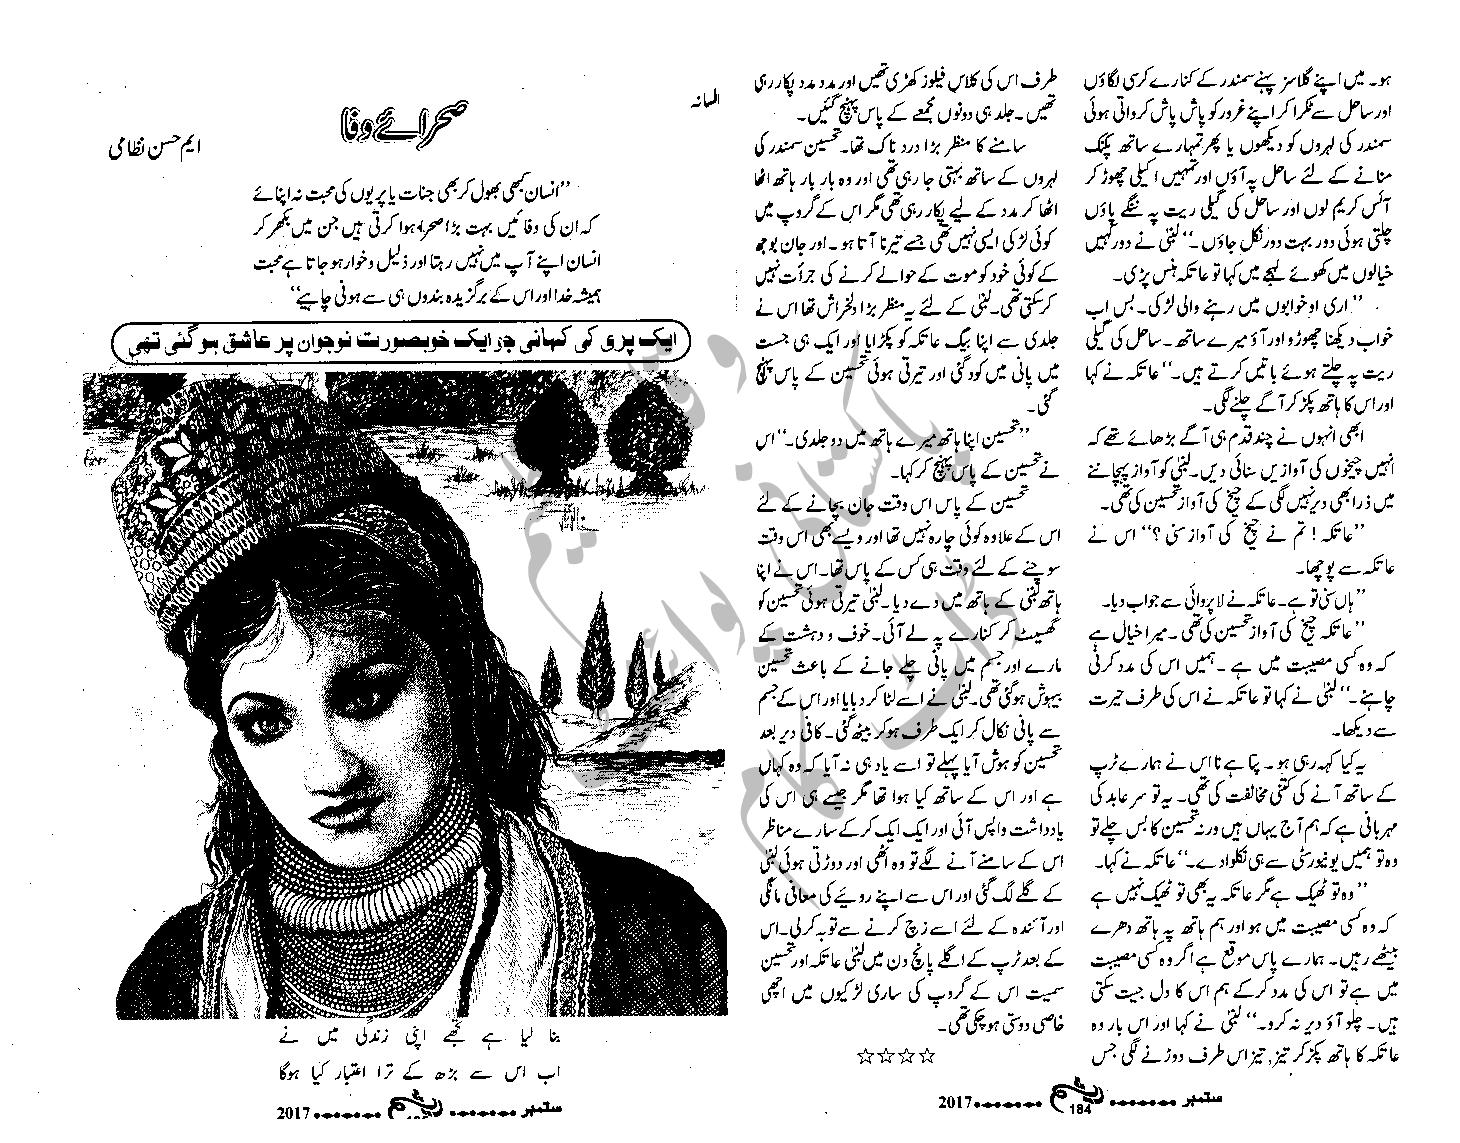 ہو۔ میں اپنے گلاسز پہنے سمندر کے کنارے کرسی لگاؤں
اور ساحل سے ٹکرا کر اپنے غرور کو پاش پاش کرواتی ہوئی
سمندر کی لہروں کو دیکھوں یا پھر تمہارے ساتھ پکنک
منانے کے لئے ساحل پہ آؤں اور تمہیں اکیلی چھوڑ کر
آئس کریم لوں اور ساحل کی گیلی ریت پہ ننگے پاؤں
چلتی ہوئی دور بہت دور نکل جاؤں۔“ لبنیٰ نے دور کہیں
خیالوں میں کھوئے لہجے میں کہا تو عاتکہ ہنس پڑی۔
”اری او خوابوں میں رہنے والی لڑکی۔ بس اب
خواب دیکھنا چھوڑو اور آؤ میرے ساتھ۔ ساحل کی گیلی
ریت پہ چلتے ہوئے باتیں کرتے ہیں۔“ عاتکہ نے کہا
اور اس کا ہاتھ پکڑ کر آگے چلنے لگی۔
ابھی انہوں نے چند قدم ہی آگے بڑھائے تھے کہ
انہیں چیخوں کی آوازیں سنائی دیں۔ لبنیٰ کو آواز پہچاننے
میں ذرا بھی دیر نہیں لگی کے چیخ کی آواز تحسین کی تھی۔
”عاتکہ! تم نے چیخ کی آواز سنی؟“ اس نے
عاتکہ سے پوچھا۔
”ہاں سنی تو ہے۔ عاتکہ نے لا پروائی سے جواب دیا۔
”عاتکہ چیخ کی آواز تحسین کی تھی۔ میرا خیال ہے
کہ وہ کسی مصیبت میں ہے۔ ہمیں اس کی مدد کرنی
چاہئے۔“ لبنیٰ نے کہا تو عاتکہ نے اس کی طرف حیرت
سے دیکھا۔
یہ کیا کہہ رہی ہو۔ پتا ہے نا اس نے ہمارے ٹرپ
کے ساتھ آنے کی کتنی مخالفت کی تھی۔ یہ تو سر عابد کی
مہربانی ہے کہ ہم آج یہاں ہیں ورنہ تحسین کا بس چلے تو
وہ تو ہمیں یونیورسٹی سے ہی نکلوا دے۔“ عاتکہ نے کہا۔
”وہ تو ٹھیک ہے مگر عاتکہ یہ بھی تو ٹھیک نہیں ہے
کہ وہ کسی مصیبت میں ہو اور ہم ہاتھ پہ ہاتھ دھرے
بیٹھے رہیں۔ ہمارے پاس موقع ہے اگر وہ کسی مصیبت
میں ہے تو اس کی مدد کر کے ہم اس کا دل جیت سکتی
ہیں۔ چلو آؤ دیر نہ کرو۔“ لبنیٰ نے کہا اور اس بار وہ
عاتکہ کا ہاتھ پکڑ کر تیز تیز اس طرف دوڑنے لگی جس
طرف اس کی کلاس فیلوز کھڑی تھیں اور مدد مدد پکار رہی
تھیں۔ جلد ہی دونوں مجمعے کے پاس پہنچ گئیں۔
سامنے کا منظر بڑا درد ناک تھا۔ تحسین سمندر کی
لہروں کے ساتھ بہتی جا رہی تھی اور وہ بار بار ہاتھ اٹھا
اٹھا کر مدد کے لیے پکار رہی تھی مگر اس کے گروپ میں
کوئی لڑکی ایسی نہیں تھی جسے تیرنا آتا ہو۔ اور جان بوجھ
کے کوئی خود کو موت کے حوالے کرنے کی جرأت نہیں
کر سکتی تھی۔ لبنیٰ کے لئے یہ منظر بڑا دلخراش تھا اس نے
جلدی سے اپنا بیگ عاتکہ کو پکڑایا اور ایک ہی جست
میں پانی میں کود گئی اور تیرتی ہوئی تحسین کے پاس پہنچ
گئی۔
”تحسین اپنا ہاتھ میرے ہاتھ میں دو جلدی۔“ اس
نے تحسین کے پاس پہنچ کر کہا۔
تحسین کے پاس اس وقت جان بچانے کے لئے
اس کے علاوہ کوئی چارہ نہیں تھا اور ویسے بھی اس وقت
سوچنے کے لئے وقت ہی کس کے پاس تھا۔ اس نے اپنا
ہاتھ لبنیٰ کے ہاتھ میں دے دیا۔ لبنیٰ تیرتی ہوئی تحسین کو
گھسیٹ کر کنارے پہ لے آئی۔ خوف و دہشت کے
مارے اور جسم میں پانی چلے جانے کے باعث تحسین
بیہوش ہو گئی تھی۔ لبنیٰ نے اسے لٹا کر دبایا اور اس کے جسم
سے پانی نکال کر ایک طرف ہو کر بیٹھ گئی۔ کافی دیر بعد
تحسین کو ہوش آیا پہلے تو اسے یاد ہی نہ آیا کہ وہ کہاں
ہے اور اس کے ساتھ کیا ہوا تھا مگر جیسے ہی اس کی
یادداشت واپس آئی اور ایک ایک کر کے سارے مناظر
اس کے سامنے آنے لگے تو وہ اٹھی اور دوڑتی ہوئی لبنیٰ
کے گلے لگ گئی اور اس سے اپنے رویئے کی معافی مانگی
اور آئندہ کے لئے اسے زچ کرنے سے توبہ کر لی۔ اس
کے بعد ٹرپ کے اگلے پانچ دن میں لبنیٰ عاتکہ اور تحسین
سمیت اس کے گروپ کی ساری لڑکیوں میں اچھی
خاصی دوستی ہو چکی تھی۔
☆☆☆☆
ستمبر 184 2017
افسانہ
صحرائے وفا
ایم حسن نظامی
”انسان کبھی بھول کر بھی جنات یا پریوں کی محبت نہ اپنائے
کہ ان کی وفائیں بہت بڑا صحرا ہوا کرتی ہیں جن میں بکھر کر
انسان اپنے آپ میں نہیں رہتا اور ذلیل و خوار ہو جاتا ہے محبت
ہمیشہ خدا اور اس کے برگزیدہ بندوں ہی سے ہونی چاہیے“
ایک پری کی کہانی جو ایک خوبصورت نوجوان پر عاشق ہو گئی تھی
بنا لیا ہے تجھے اپنی زندگی میں نے
اب اس سے بڑھ کے ترا اعتبار کیا ہوگا
ستمبر 2017
پاکستانی پوائنٹ ڈاٹ کام